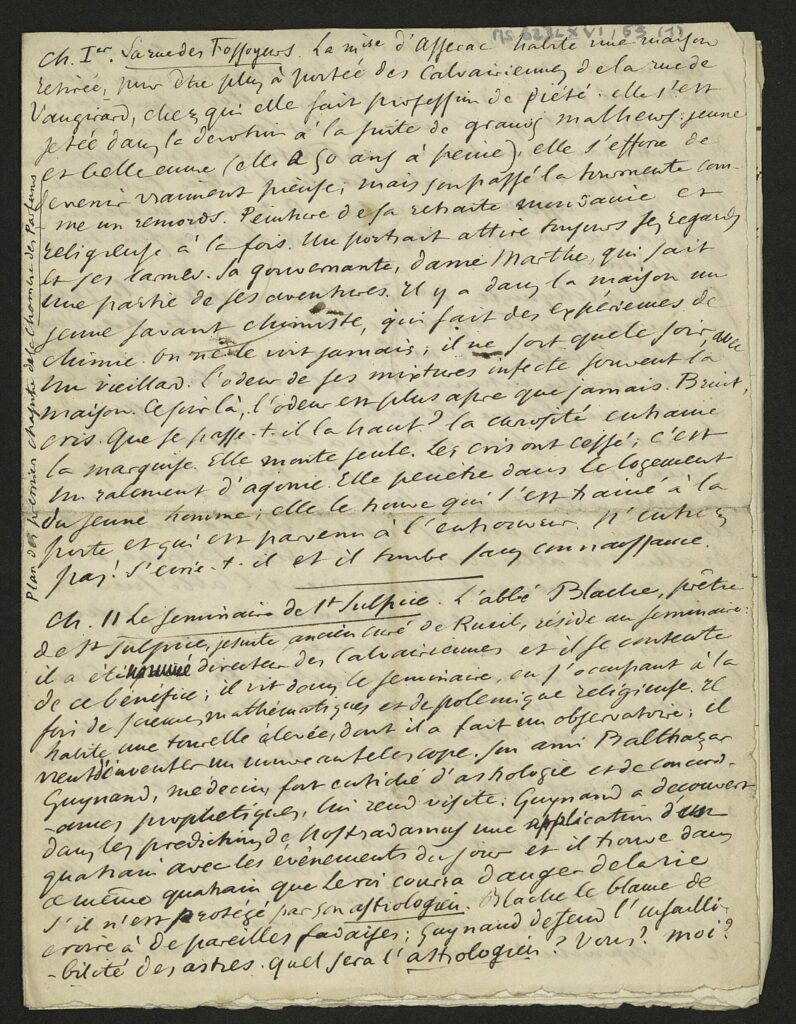 Ch. Ier. La rue des Fossoyeurs. La mise d'Asserac habite une maison
retirée, pour être plus à portée des Calvairiennes de la rue de
Vaugirard, chez qui elle fait profession de piété. elle s'est
jetée dans la dévotion à la suite de grands malheurs: jeune
et belle encore (elle a 50 ans à peine), elle s'efforce de
devenir vraiment pieuse; mais son passé la tourmente com-
me un remords. Peinture de sa retraite mondaine et
religieuse à la fois. Un portrait attire toujours ses regards
et ses larmes. Sa gouvernante, dame Marthe, qui sait
une partie de ses aventures. Il y a dans la maison un
jeune savant chimiste, qui fait des expériences de
chimie. On ne le voit jamais; il ne sort que le soir, avec
un vieillard. L'odeur de ses mixtures infecte souvent la
maison. Ce soir là, l'odeur est plus apre que jamais. Bruit,
cris. Que se passe-t-il là haut? la curiosité entraine
la marquise. Elle monte seule. Les cris ont cessé; c'est
un ralement d'agonie. Elle penètre dans le logement
du jeune homme; elle le trouve qui s'est trainé à la
porte et qui est parvenu à l'entrouvrir. N'entrez
pas! S'écrie-t-il et il tombe sans connaissance.
Ch. II Le seminaire de St Sulpice. L'abbé Blache, prêtre
de St Sulpice, jesuite ancien curé de Rueil, réside au seminaire:
il a été nommé directeur des Calvairiennes et il se contente
de ce bénéfice; il vit dans le seminaire, en s'occupant à la
fois de sciences mathématiques et de polemique religieuse. Il
habite une tourelle élevée, dont il a fait un observatoire; il
vient d'inventer un nouveau telescope. Son ami Balthazar
Guynaud, medecin, fort entiché d'astrologie et de concord-
-ances prophetiques, lui rend visite: Guynaud a decouvert
dans les predictions de Nostradamus une application d'un
quatrain avec les évènements du jour et il trouve dans
ce même quatrain que le roi courra danger de la vie
s'il n'est protégé par son astrologien. Blache le blame de
croire à de pareilles fadaises; Guynaud defend l'infailli-
-bilité des astres. Quel sera l'astrologien? Vous? moi?
Plan des premiers chapitres de la Chambre des Poisons